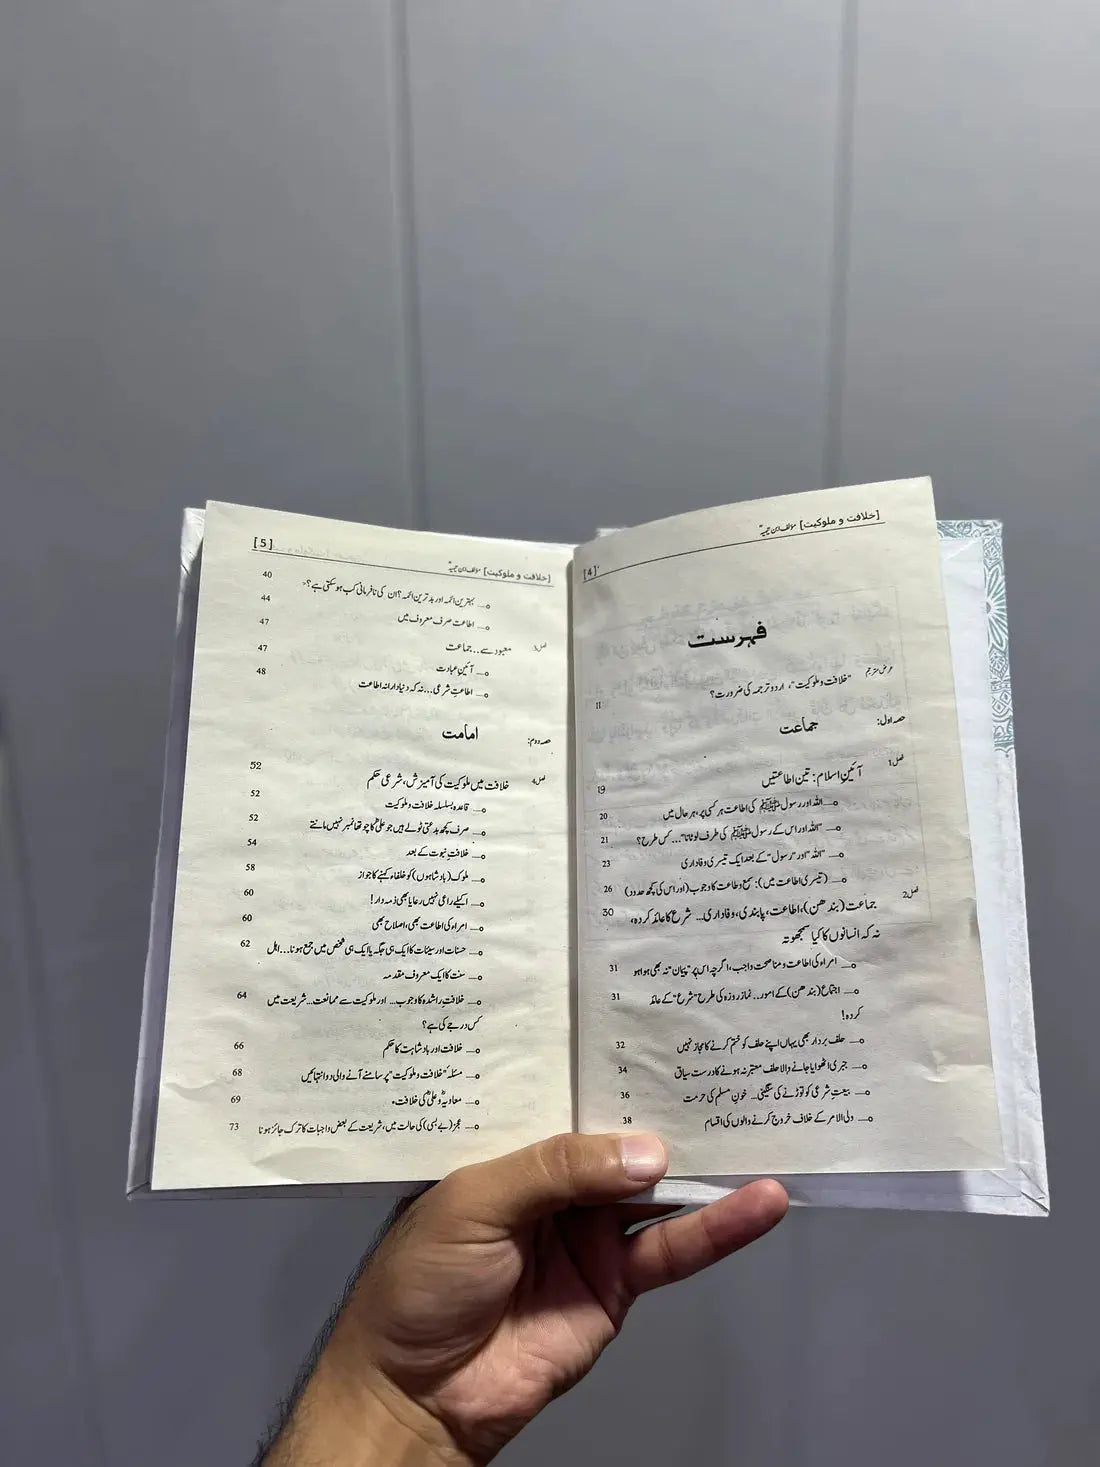 [خلافت و ملوکیت] مؤلف ابن تیمیہؒ
[4]
فہرست
عرض مترجم
"خلافت و ملوکیت"، اردو ترجمہ کی ضرورت؟ 11
حصہ اول: جماعت
فصل1 آئینِ اسلام: تین اطاعتیں 19
o— اللہ اور رسول ﷺ کی اطاعت ہر کسی پر، ہر حال میں 20
o— "اللہ اور اس کے رسول ﷺ کی طرف لوٹانا"... کس طرح؟ 21
o— "اللہ" اور "رسول" کے بعد ایک تیسری وفاداری 23
o— (تیسری اطاعت میں): سمع و طاعت کا وجوب (اور اس کی کچھ حدود) 26
فصل2 جماعت (بندھن)، اطاعت، پابندی، وفاداری... شرع کا عائد کردہ، 30
نہ کہ انسانوں کا کیا سمجھوتہ
o— امراء کی اطاعت و مناصحت واجب، اگرچہ اس پر "پیمان" نہ بھی ہوا ہو 31
o— اجتماع (بندھن) کے امور.. نماز روزہ کی طرح "شرع" کے عائد 31
کردہ!
o— حلف بردار بھی یہاں اپنے حلف کو ختم کرنے کا مجاز نہیں 32
o— جبری اٹھوایا جانے والا حلف معتبر نہ ہونے کا درست سیاق 34
o— بیعتِ شرعی کو توڑنے کی سنگینی.. خونِ مسلم کی حرمت 36
o— ولی الامر کے خلاف خروج کرنے والوں کی اقسام 38
[خلافت و ملوکیت] مؤلف ابن تیمیہؒ
[5]
o— بہترین ائمہ اور بدترین ائمہ؟ ان کی نافرمانی کب ہو سکتی ہے؟ 40
o— اطاعت صرف معروف میں 44
فصل3 معبود سے... جماعت 47
o— آئینِ عبادت 47
o— اطاعتِ شرعی... نہ کہ دنیادارانہ اطاعت 48
حصہ دوم: امامت
فصل4 خلافت میں ملوکیت کی آمیزش، شرعی حکم 52
o— قاعدہ بسلسلہ خلافت و ملوکیت 52
o— صرف کچھ بدعتی ٹولے ہیں جو علیؓ کا چوتھا نمبر نہیں مانتے 52
o— خلافتِ نبوت کے بعد 54
o— ملوک (بادشاہوں) کو خلفاء کہنے کا جواز 58
o— اکیلے راعی نہیں رعایا بھی ذمہ دار! 60
o— امراء کی اطاعت بھی، اصلاح بھی 60
o— حسنات اور سیئات کا ایک ہی جگہ یا ایک ہی شخص میں جمع ہونا... اہل 62
سنت کا ایک معروف مقدمہ
o— خلافتِ راشدہ کا وجوب... اور ملوکیت سے ممانعت... شریعت میں 64
کس درجے کی ہے؟
o— خلافت اور بادشاہت کا حکم 66
o— مسئلہ "خلافت و ملوکیت" پر سامنے آنے والی دو انتہائیں 68
o— معاویہؓ و علیؓ کی خلافت 69
o— عجز (بے بسی) کی حالت میں، شریعت کے بعض واجبات کا ترک جائز ہونا 73